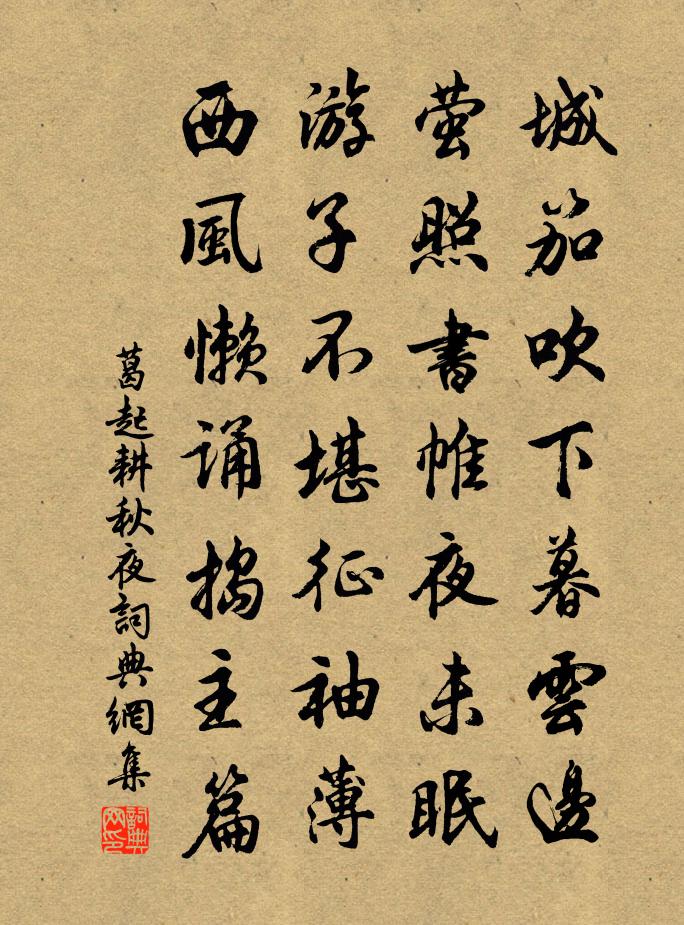 城笳吹下暮雲邊
萤照書帷夜未眠
游子不堪征袖薄
西風懶誦搗主篇
葛起耕秋夜詞典網集
詞典网印